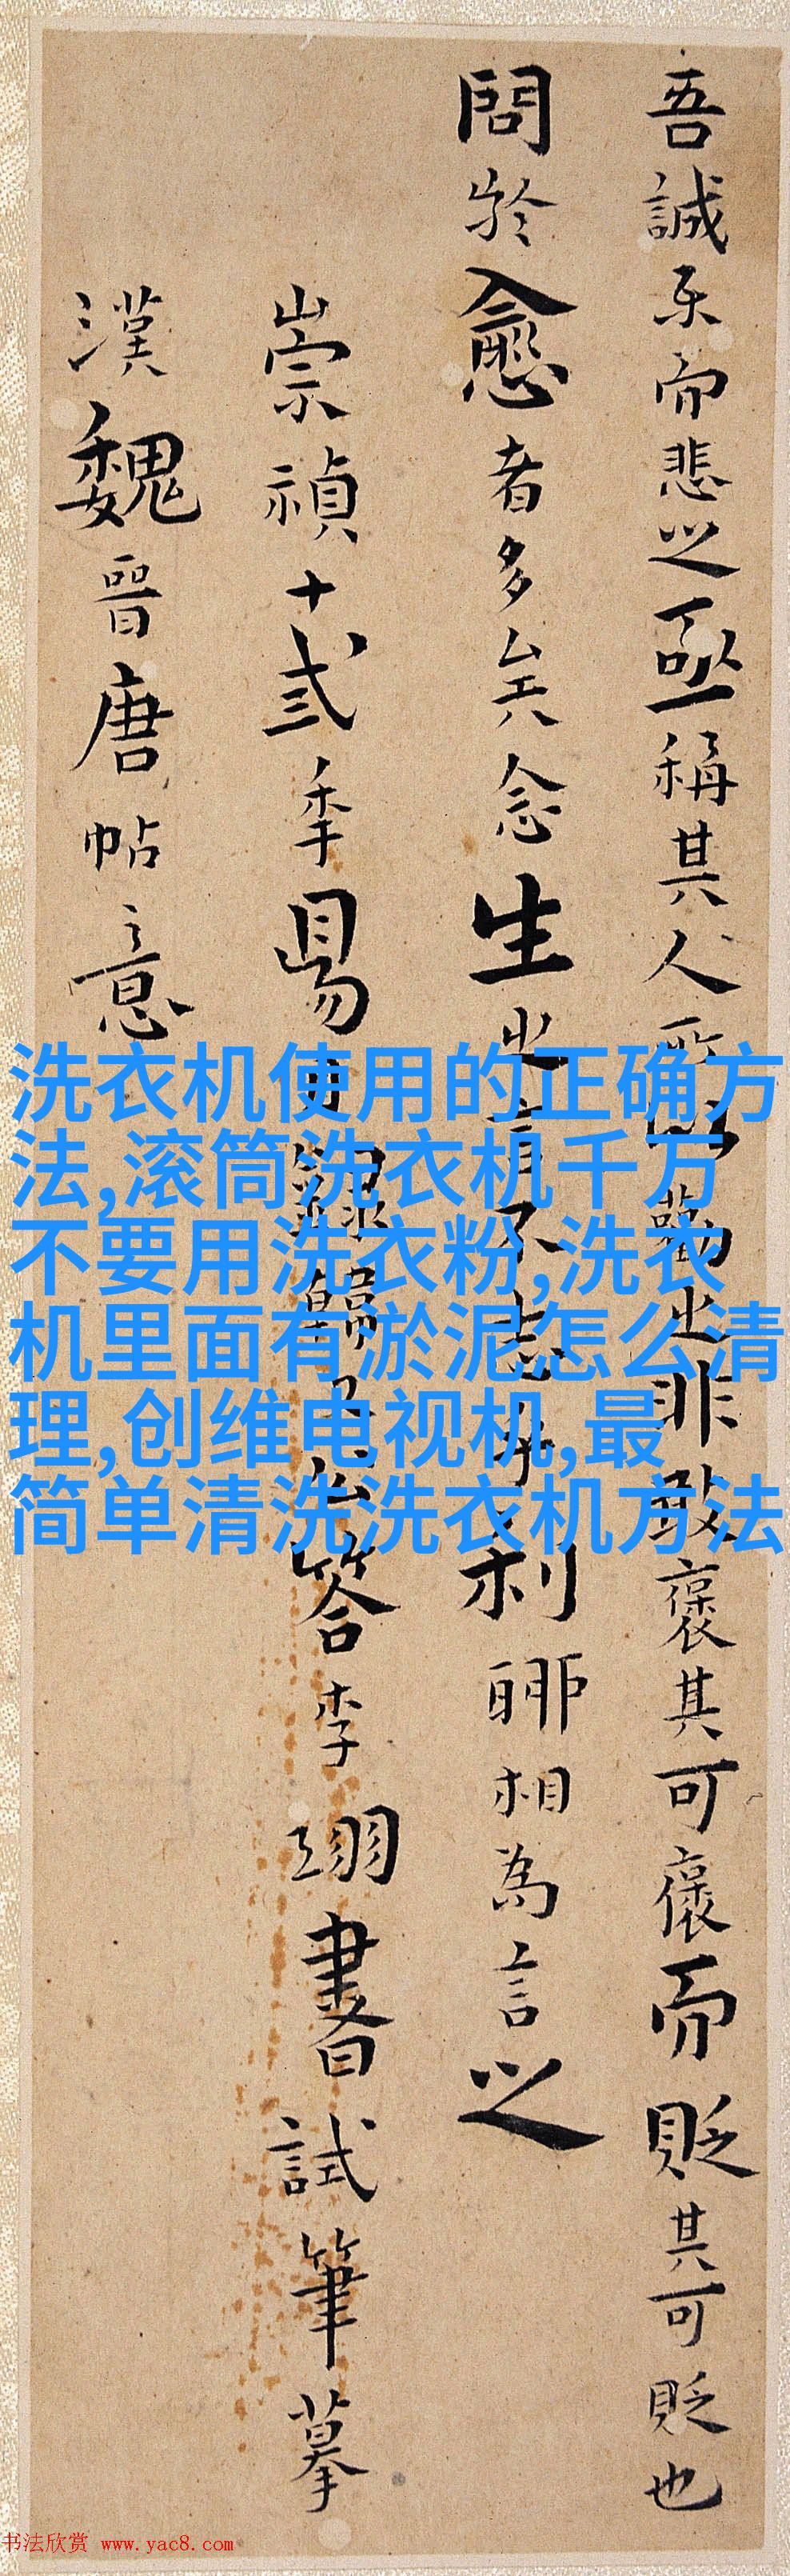 吾誠乐而悲之亟稱其人所以勸之非敢褒其可褒而貶其可貶也
問於愈者多矣念生之言不志乎利聊相為言之
崇禎十弎季錄韓公答李翊書試筆摹
漢魏晉唐帖意
洗衣机使用的正确方
法,滚筒洗衣机千万
不要用洗衣粉,洗衣
机里面有淤泥怎么清
理,创维电视机,最
简单清洗洗衣机方法
书法欣赏 www.yac8.com